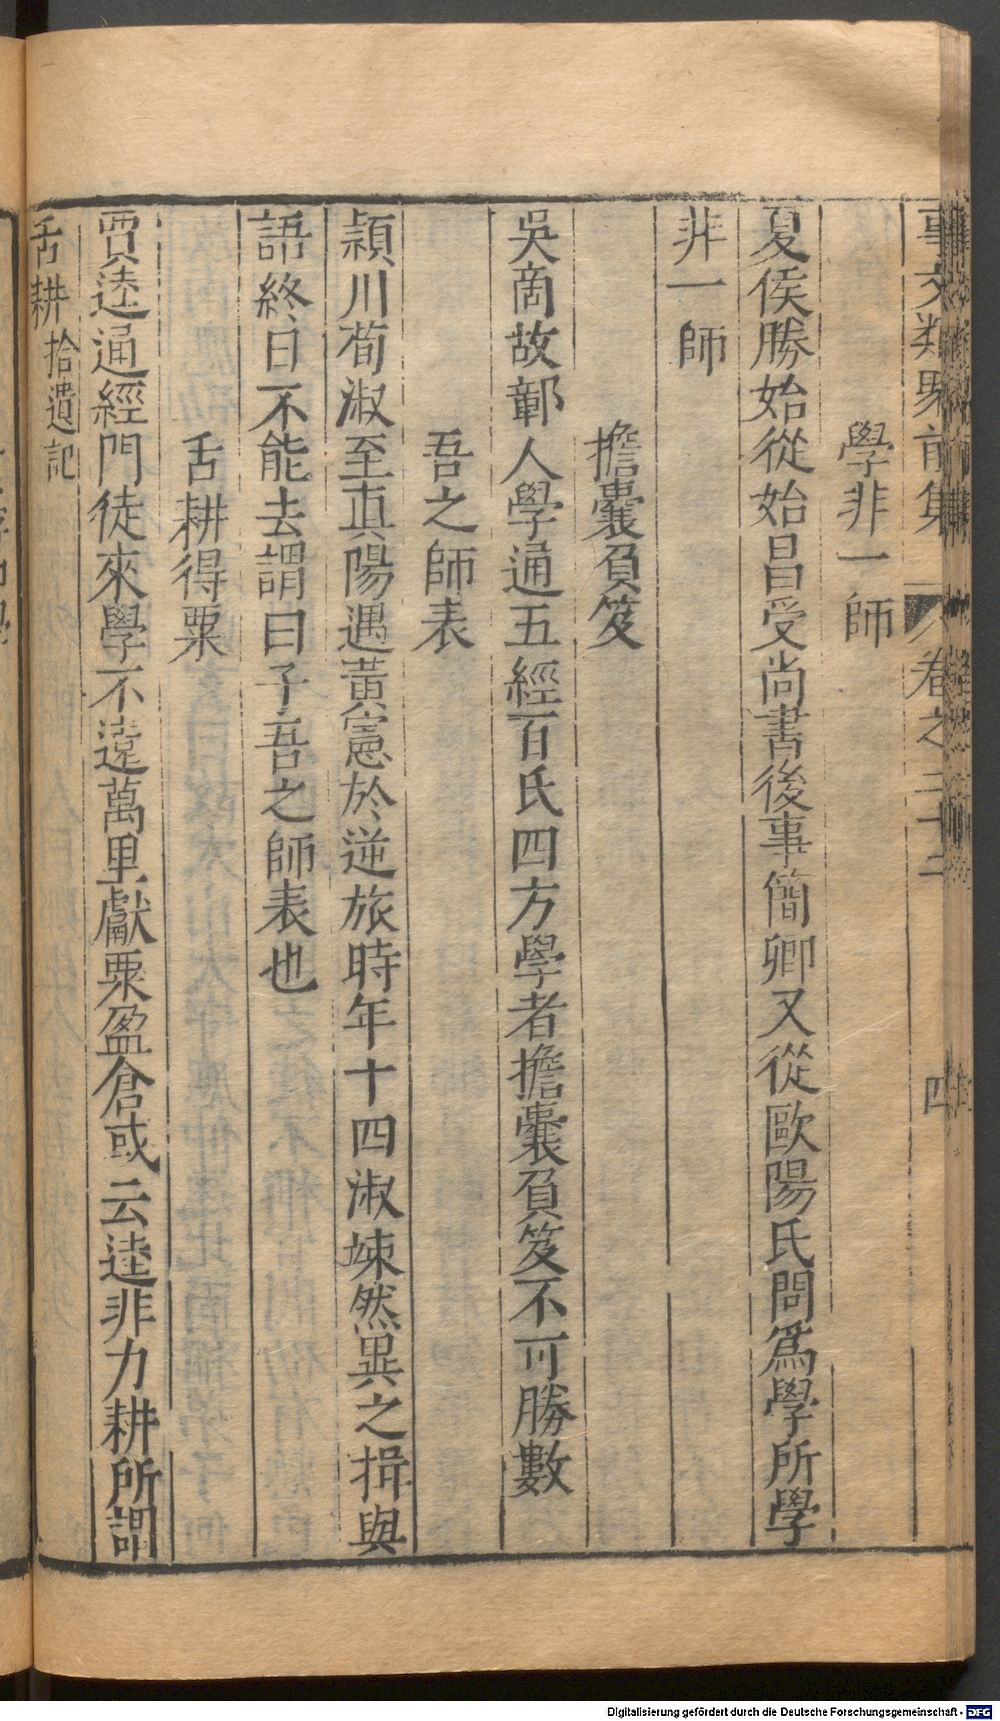 事文類聚前集 卷之三十二 四
學非一師
夏侯勝始從始昌受尚書後事簡卿又從歐陽氏問爲學所學
非一師
擔囊負笈
吳啇故鄣人學通五經百氏四方學者擔囊負笈不可勝數
吾之師表
潁川荀淑至真陽遇黃憲於逆旅時年十四淑竦然異之揖與
語終日不能去謂曰子吾之師表也
舌耕得粟
賈逵通經門徒來學不遠萬里獻粟盈倉或云逵非力耕所謂
舌耕 拾遺記
Digitalisierung gefördert durch die Deutsche Forschungsgemeinschaft - DFG